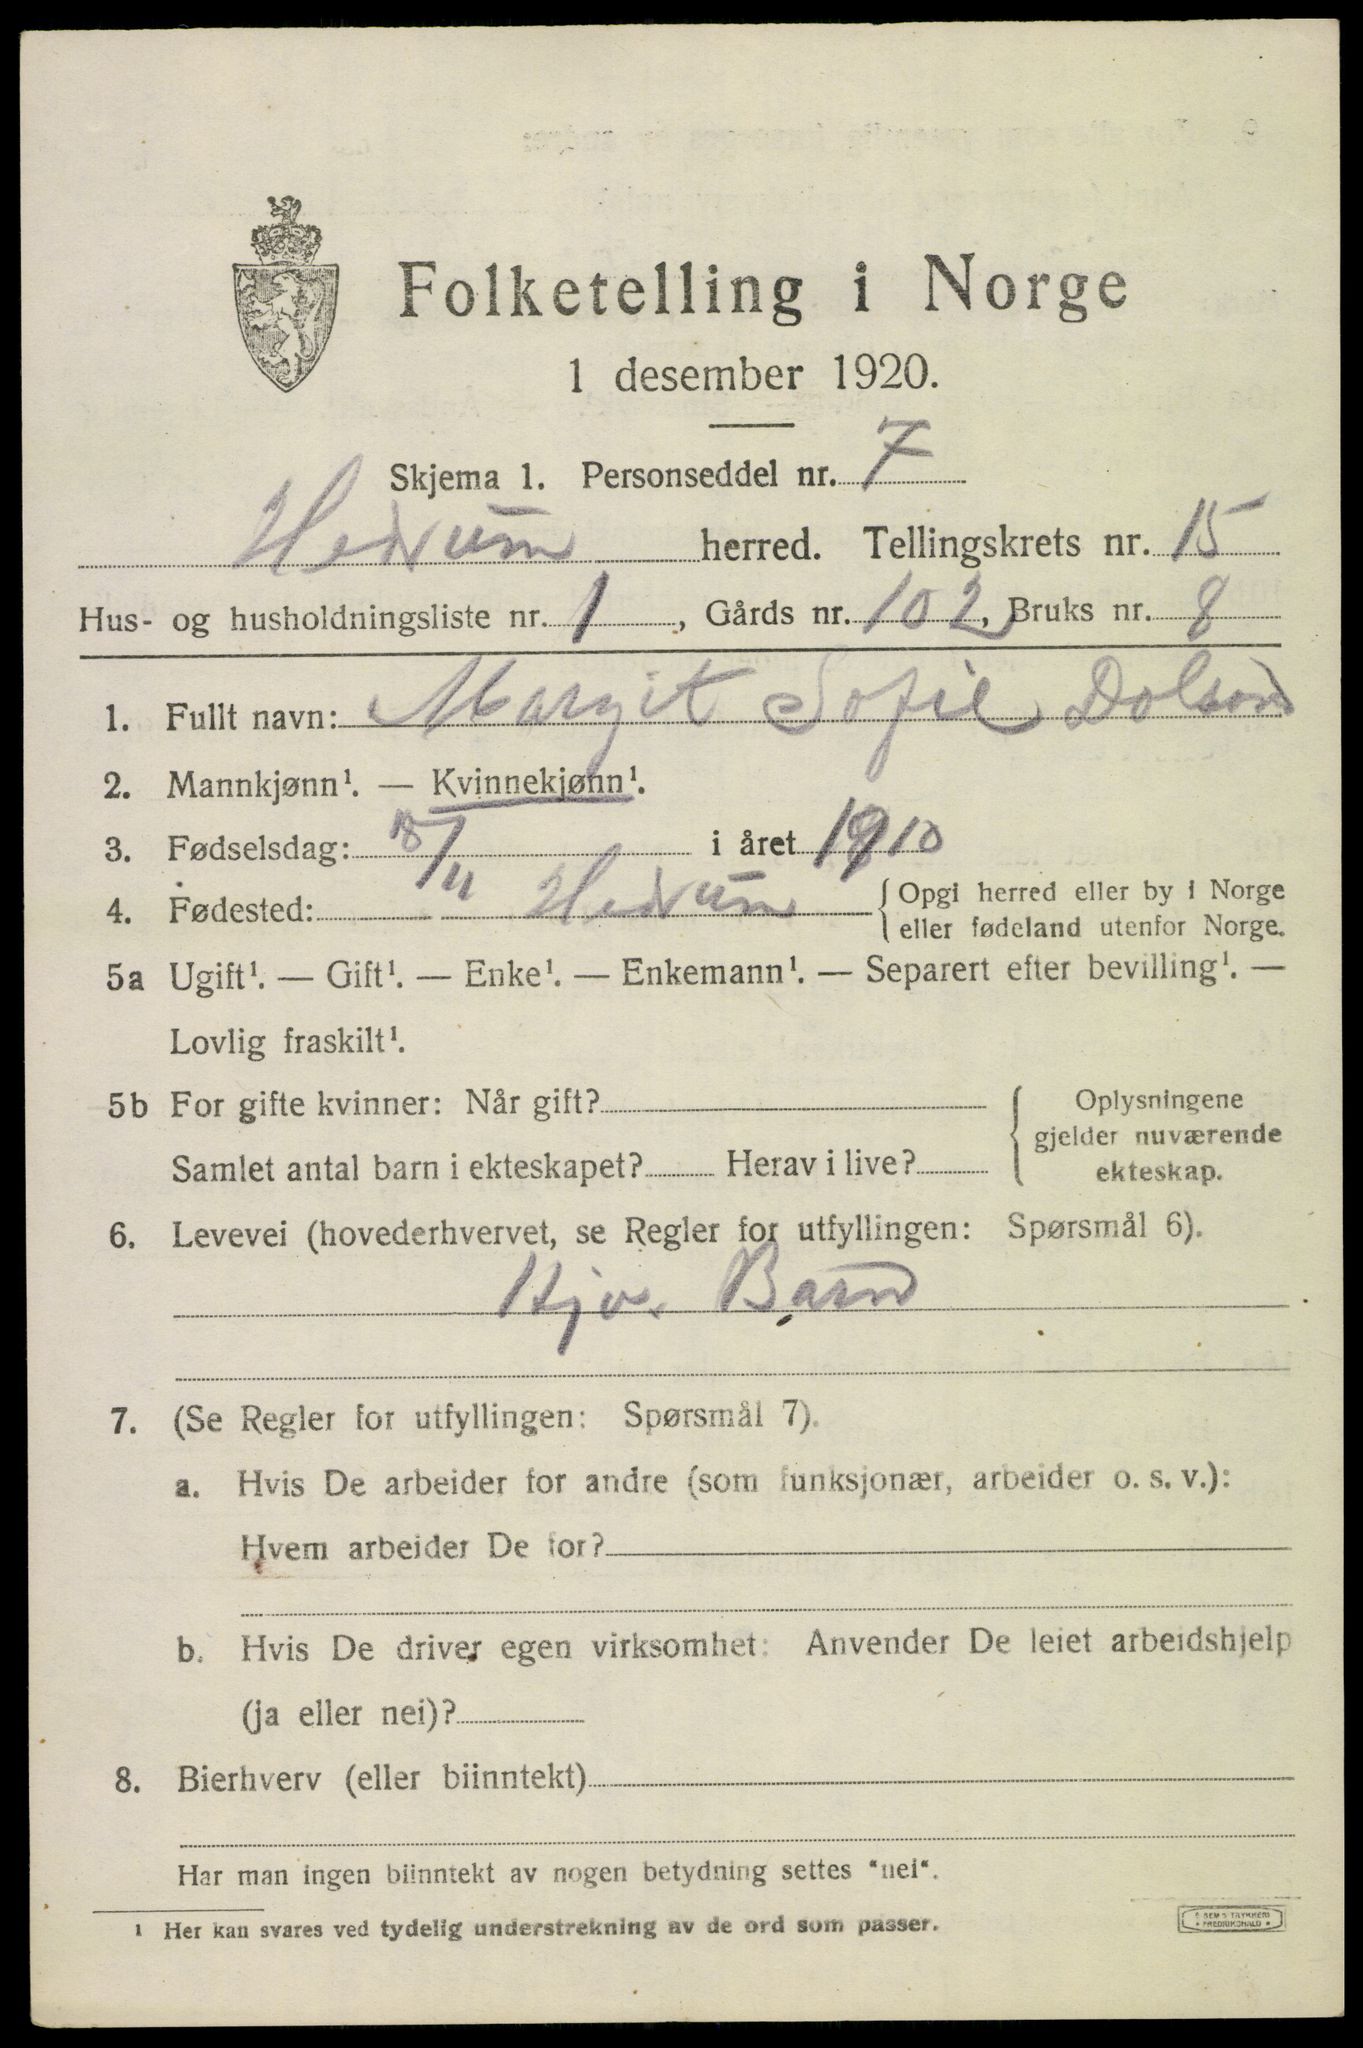 Folketelling i Norge
1 desember 1920.
Skjema 1. Personseddel nr. 7
Hedrum herred. Tellingskrets nr. 15
Hus- og husholdningsliste nr. 1, Gårds nr. 102, Bruks nr. 8
1. Fullt navn: Margit Sofie Dolson
2. Mannkjønn¹. — Kvinnekjønn¹.
3. Fødselsdag: 18/11 i året 1910
4. Fødested: Hedrum { Opgi herred eller by i Norge
eller fødeland utenfor Norge.
5a Ugift¹. — Gift¹. — Enke¹. — Enkemann¹. — Separert efter bevilling¹. —
Lovlig fraskilt¹.
5b For gifte kvinner: Når gift?
Samlet antal barn i ekteskapet? Herav i live?
{ Oplysningene
gjelder nuværende
ekteskap.
6. Levevei (hovederhvervet, se Regler for utfyllingen: Spørsmål 6).
Hjv. Barn
7. (Se Regler for utfyllingen: Spørsmål 7).
a. Hvis De arbeider for andre (som funksjonær, arbeider o. s. v.):
Hvem arbeider De for?
b. Hvis De driver egen virksomhet: Anvender De leiet arbeidshjelp
(ja eller nei)?
8. Bierhverv (eller biinntekt)
Har man ingen biinntekt av nogen betydning settes "nei".
¹ Her kan svares ved tydelig understrekning av de ord som passer.
SEM'S TRYKKERI
FREDRIKSHALD